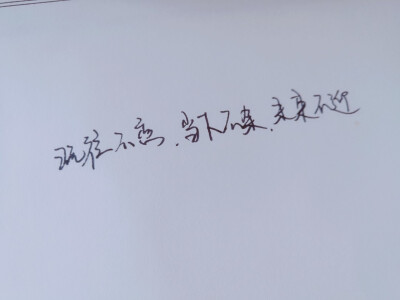 既往不恋,当下不杂,未来不迎